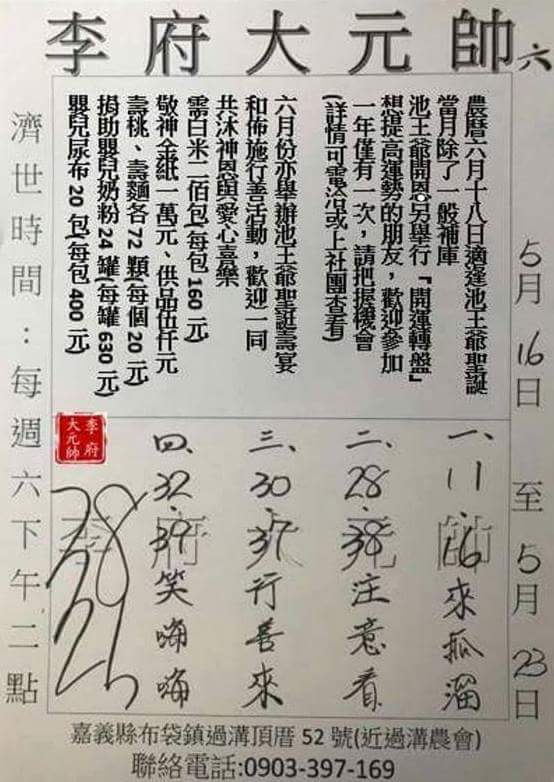 李府大元帥
六
5月16日至5月23日
農曆六月十八日適逢池王爺聖誕
當月除了一般補庫
池王爺開恩另舉行「開運轉盤」
想提高運勢的朋友，歡迎參加
一年僅有一次，請把握機會
(詳情可電洽或上社團查看)
六月份亦舉辦池王爺聖誕壽宴
和佈施行善活動，歡迎一同
共沐神恩與愛心喜樂
需白米二佰包(每包160元)
敬神金紙一萬元、供品伍仟元
壽桃、壽麵各72顆(每個20元)
捐助嬰兒奶粉24罐(每罐630元)
嬰兒尿布20包(每包400元)
濟世時間：每週六下午二點
一、11.16來孤溜
二、28.38注意看
三、30.37行善來
四、32.39笑嗨嗨
李府
大元帥
李府大元帥
嘉義縣布袋鎮過溝頂厝52號(近過溝農會)
聯絡電話:0903-397-169